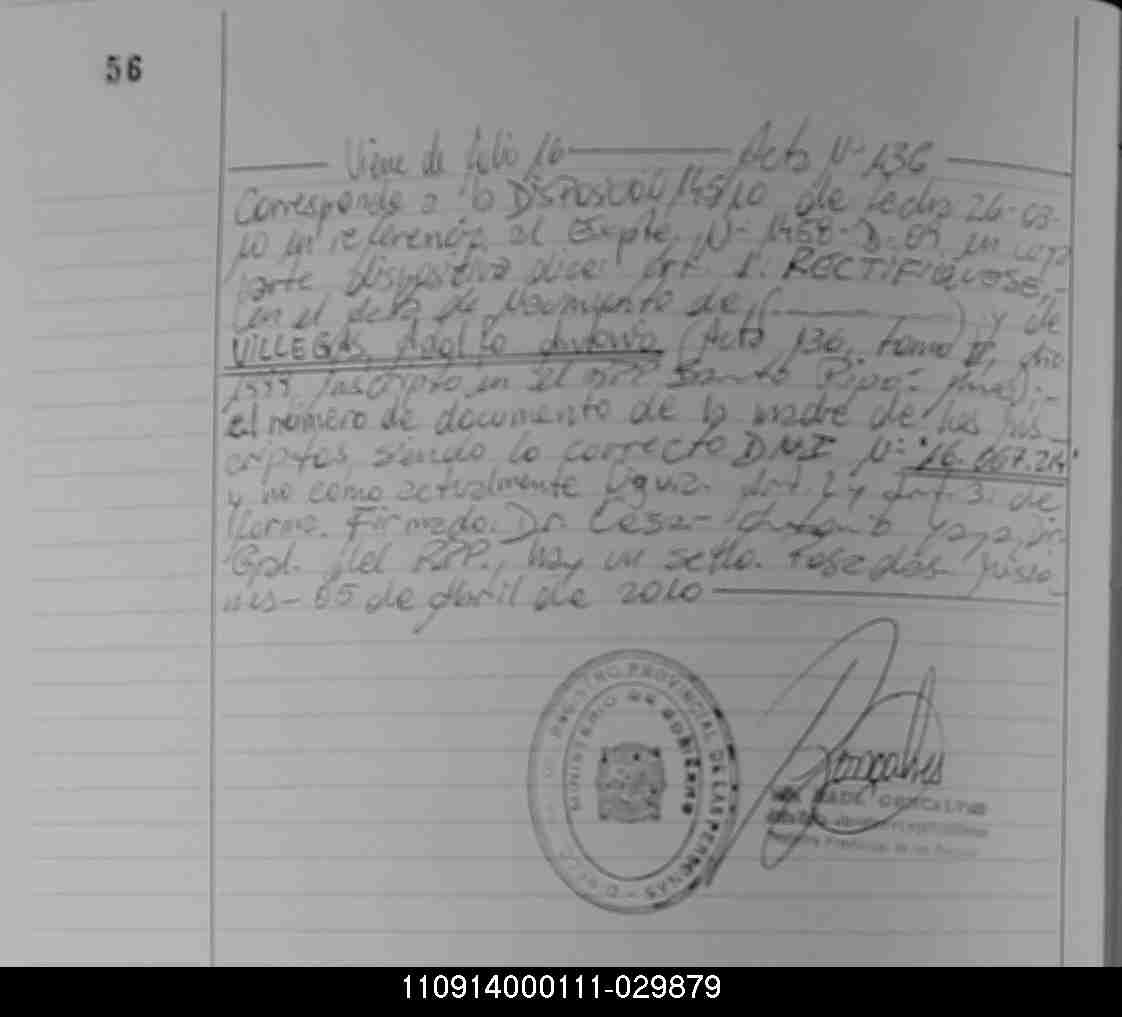 56
Viene de folio 16 Acta Nº 136
Corresponde a la DISPOSICION 145/10 de fecha 26-03-
10 en referencia al Expte. Nº 1468-D-09 en
parte dispositiva dice: Art. 1: RECTIFIQUESE,-
en el acta de Nacimiento de, ( ) y de
VILLEGAS, Antonio (Acta 136, tomo II, año
1999, inscripto en el RPP Santo Pipo- Mnes),-
el número de documento de la madre de los ins_
criptos, siendo lo correcto DNI Nº "16.067.214"
y no como actualmente figura. Art. 2 y Art. 3: de
forma. Firmado. Dr. Cesar Antonio Dir.
Gral. del RPP., hay un sello. Posadas Misio_
nes- 05 de Abril de 2010
REGISTRO PROVINCIAL DE LAS PERSONAS
MINISTERIO DE GOBIERNO
GONCALVES
110914000111-029879